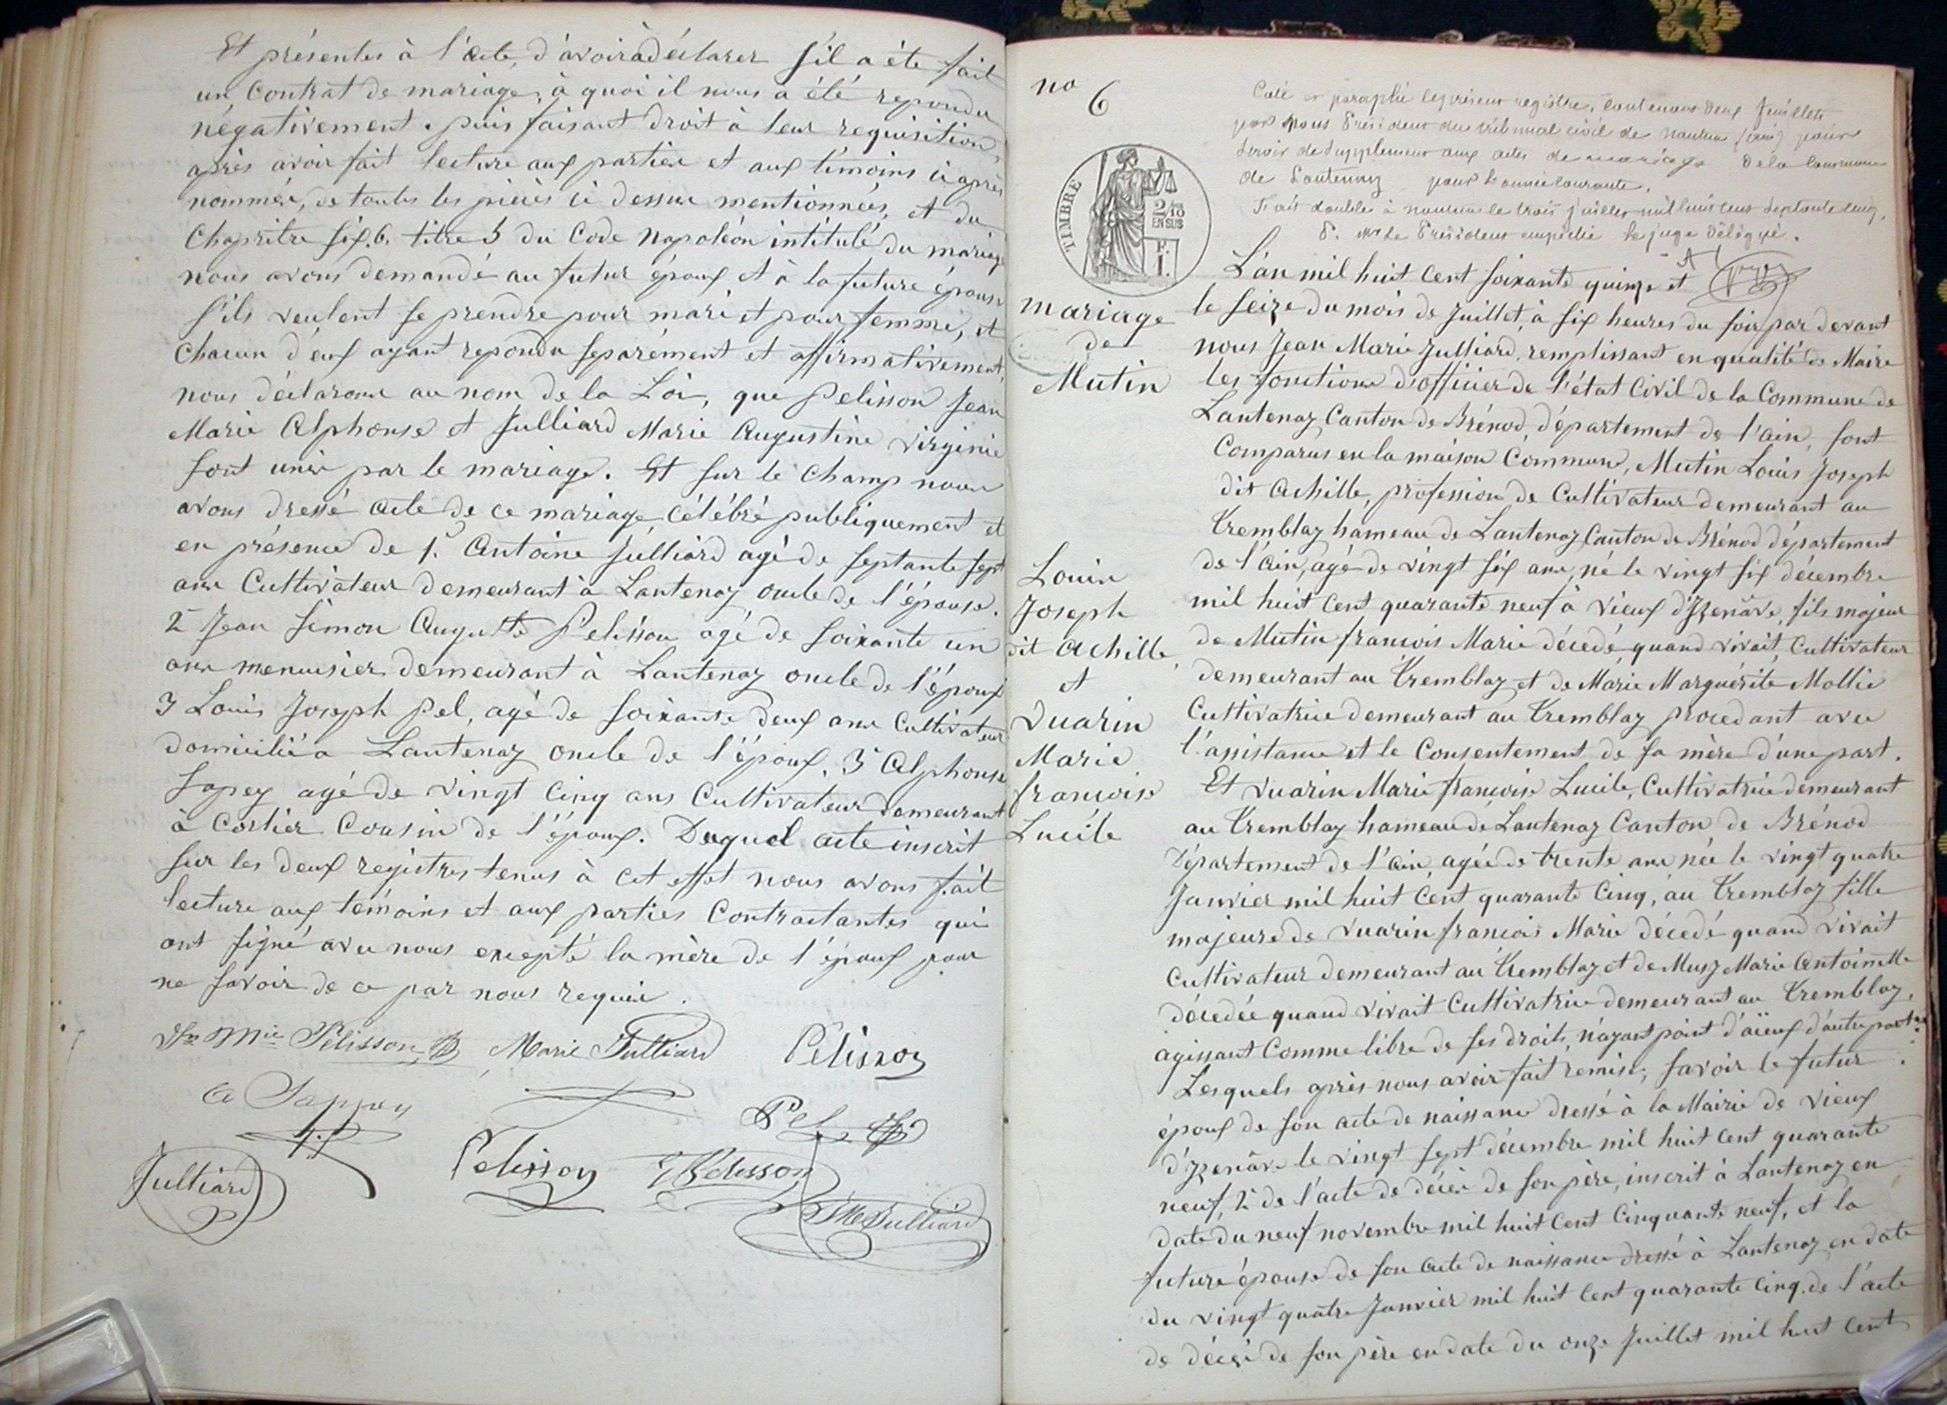 Et présentes à l'acte, d'avoir à déclarer s'il a été fait
un contrat de mariage, à quoi il nous a été repondu
négativement. puis faisant droit à leur requisition,
après avoir fait lecture aux parties et aux témoins ci après
nommés, de toutes les pièces ci dessus mentionnées, et du
Chapritre six, 6. titre 5 du Code Napoléon intitulé du mariage
nous avons demandé au futur époux et à la future épouse
s'ils veulent se prendre pour mari et pour femme, et
chacun d'eux ayant repondu séparément et affirmativement,
nous déclarons au nom de la Loi, que Pelisson Jean
Marie Alphonse et Julliard Marie Augustine Virginie
sont unis par le mariage. Et sur le champ nous
avons dressé acte de ce mariage célébré publiquement et
en présence de 1.° Antoine Julliard agé de septante sept
ans Cultivateur demeurant à Lantenay oncle de l'épouse.
2° Jean Simon Auguste Pelisson agé de soixante un
ans menuisier demeurant à Lantenay oncle de l'époux
3 Louis Joseph Pel, agé de soixante deux ans Cultivateur
domicilié à Lantenay oncle de l'époux, 3° Alphonse
Sapey agé de vingt cinq ans Cultivateur demeurant
à Corlier Cousin de l'époux. Duquel acte inscrit
sur les deux registres tenus à cet effet nous avons fait
lecture aux témoins et aux parties Contractantes qui
ont signé avec nous excepté la mère de l'époux pour
ne savoir de ce par nous requise.
Jn Mie Pelisson Marie Julliard Pélisson
A Sappey
Pel
Julliard Pelisson Pelisson
Julliard
no 6
Coté et paraphé le présent registre, contenant deux feuillets
par Nous Président du tribunal civil de nantua (ain) pour
servir de supplément aux actes de mariage de la Commune
de Lantenay pour l'année courante.
Fait double à nantua le trois juillet mil huit cent septante cinq.
P. Mr le Président empêché le juge délégué.
TIMBRE
2/10 EN SUS
mariage
de
Mutin
Louis
Joseph
dit Achille
et
Vuarin
Marie
françoise
Lucile
L'an mil huit cent soixante quinze et
le seize du mois de Juillet, à six heures du soir par devant
nous Jean Marie Julliard, remplissant en qualité de Maire
les fonctions d'officier de l'état Civil de la Commune de
Lantenay Canton de Brénod, département de l'ain, sont
Comparus en la maison Commune, Mutin Louis Joseph
dit Achille, profession de Cultivateur demeurant au
Tremblay hameau de Lantenay Canton de Brénod département
de l'ain, agé de vingt six ans, né le vingt six décembre
mil huit cent quarante neuf à vieux d'Yzenâve, fils majeur
de Mutin françois Marie décédé quand vivait Cultivateur
demeurant au Tremblay et de Marie Marguérite Mollie
Cultivatrice demeurant au Tremblay procedant avec
l'assistance et le Consentement de sa mère d'une part.
Et Vuarin Marie françoise Lucile, Cultivatrice demeurant
au Tremblay hameau de Lantenay Canton de Brénod
Département de l'ain, agée de trente ans née le vingt quatre
Janvier mil huit Cent quarante Cinq, au Tremblay fille
majeure de Vuarin françois Marie décédé quand vivait
Cultivateur demeurant au Tremblay et de Musy Marie Antoinette
décédée quand vivait Cultivatrice demeurant au Tremblay,
agissant Comme libre de ses droits, n'ayant point d'aïeux d'autre part.
Lesquels après nous avoir fait remise, savoir le futur
époux de son acte de naissance dressé à la Mairie de vieux
d'Yzenâve le vingt sept décembre mil huit cent quarante
neuf, 2° de l'acte de décès de son père, inscrit à Lantenay en
date du neuf novembre mil huit Cent Cinquante neuf, et la
future épouse de son acte de naissance dressé à Lantenay en date
du vingt quatre Janvier mil huit Cent quarante cinq, de l'acte
de décès de son père en date du onze Juillet mil huit Cent